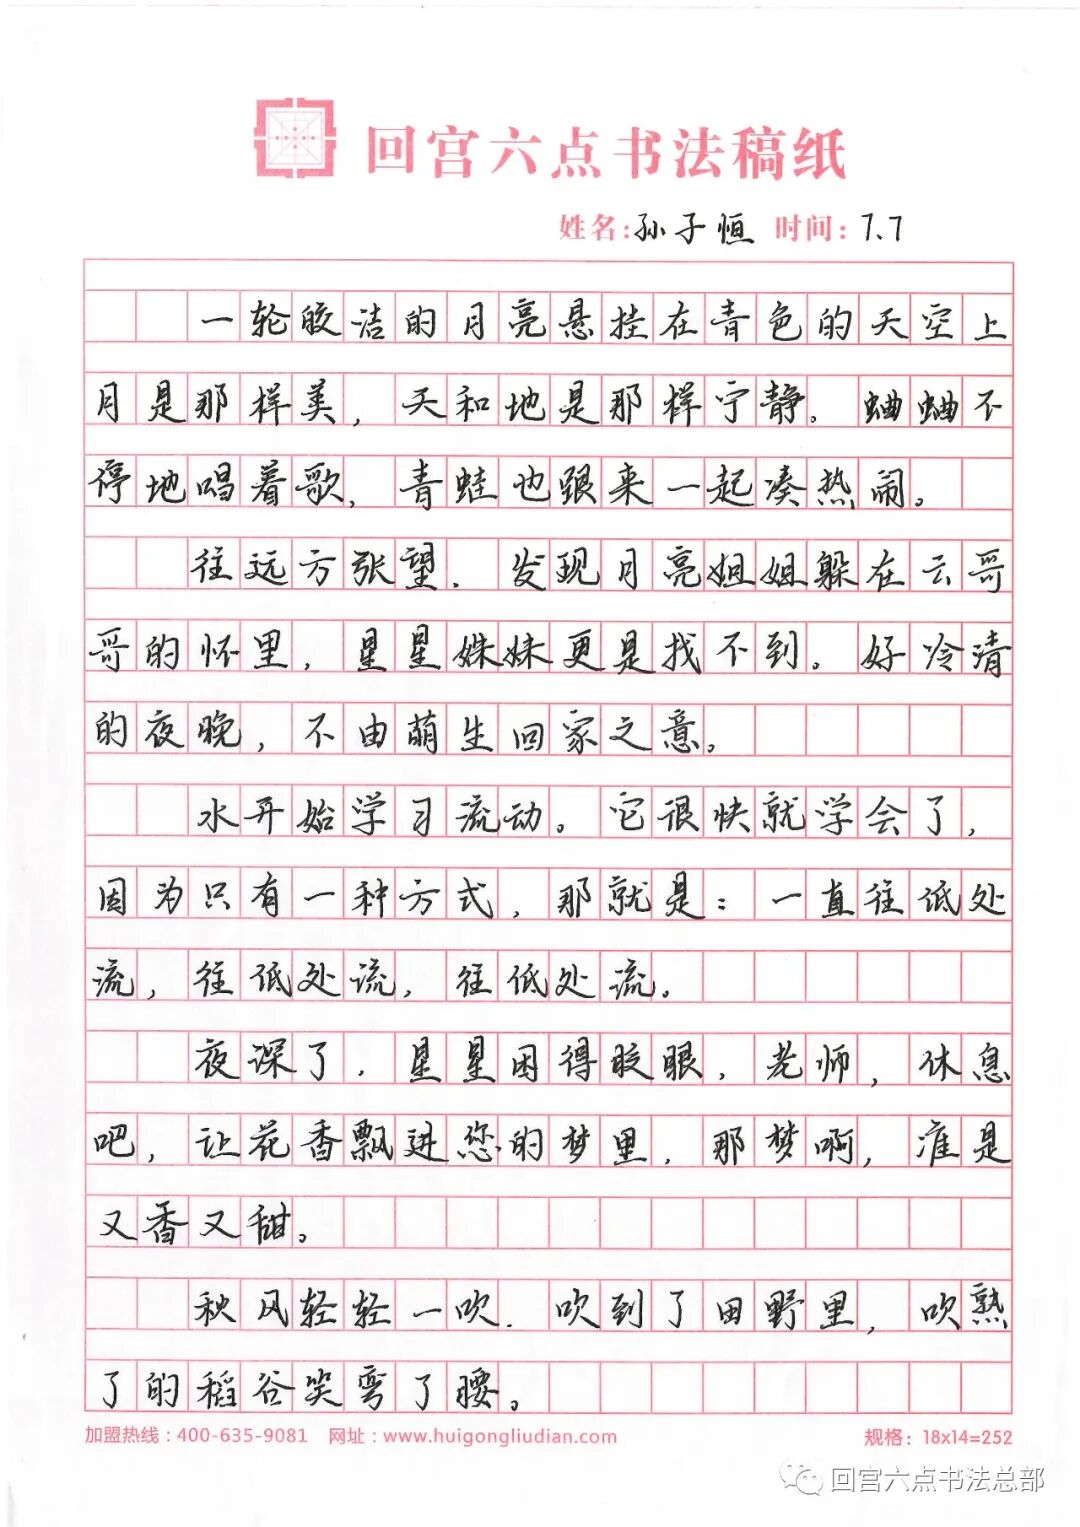 回宫六点书法稿纸
姓名:孙子恒 时间:7.7
一轮皎洁的月亮悬挂在青色的天空上
月是那样美，天和地是那样宁静。蛐蛐不
停地唱着歌，青蛙也跟来一起凑热闹。
往远方张望，发现月亮姐姐躲在云哥
哥的怀里，星星妹妹更是找不到。好冷清
的夜晚，不由萌生回家之意。
水开始学习流动。它很快就学会了，
因为只有一种方式，那就是：一直往低处
流，往低处流，往低处流。
夜深了，星星困得眨眼，老师，休息
吧，让花香飘进您的梦里，那梦啊，准是
又香又甜。
秋风轻轻一吹，吹到了田野里，吹熟
了的稻谷笑弯了腰。
加盟热线：400-635-9081 网址：www.huigongliudian.com 规格：18x14=252
回宫六点书法总部